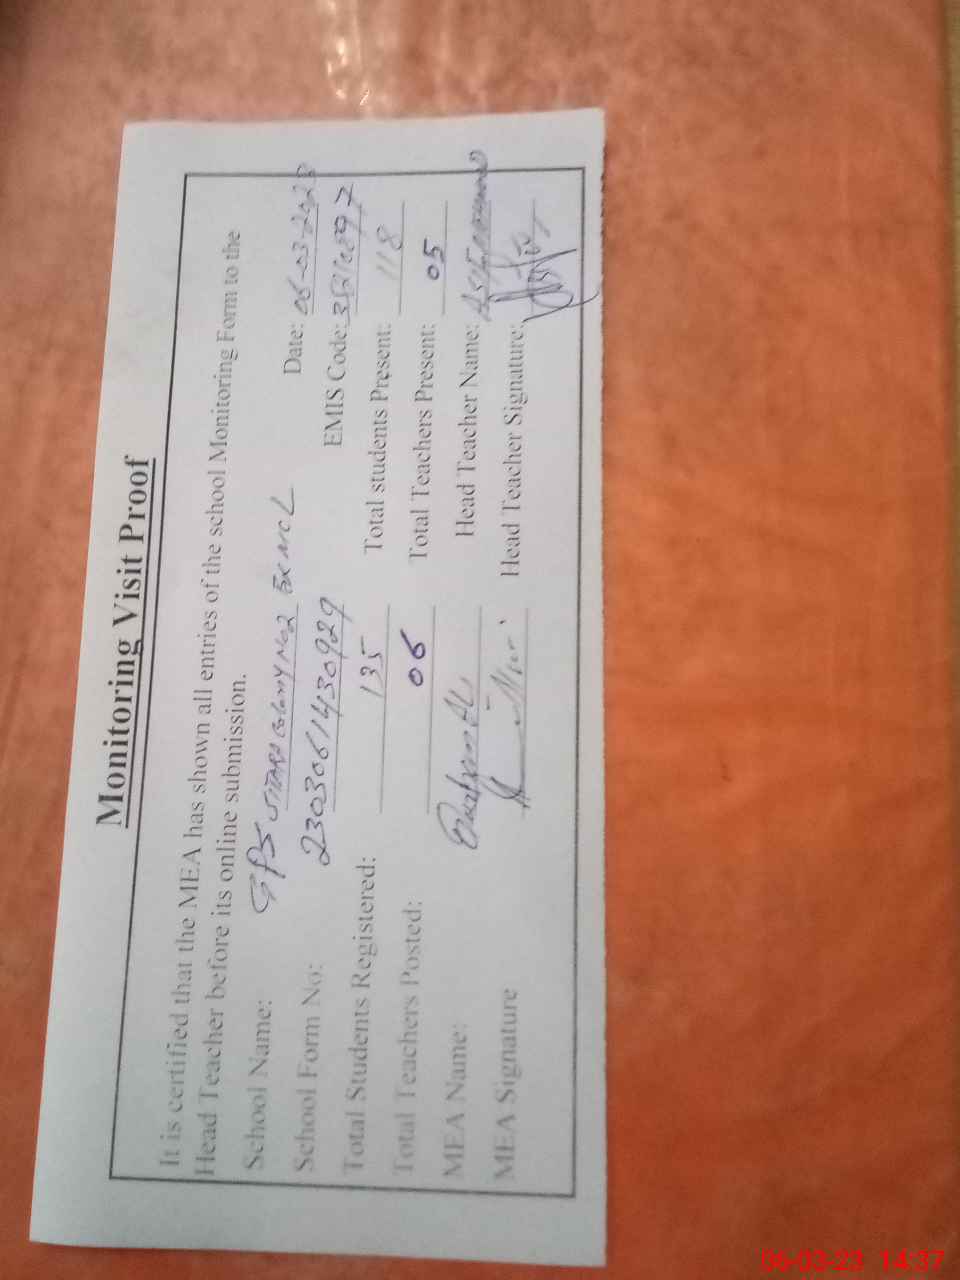 Monitoring Visit Proof
It is certified that the MEA has shown all entries of the school Monitoring Form to the
Head Teacher before its online submission.
School Name: GPS SITARA Colony No2 Ex MCL Date: 06-03-2023
School Form No: 2303061430929 EMIS Code:
Total Students Registered: 135 Total students Present: 118
Total Teachers Posted: 06 Total Teachers Present: 05
MEA Name: Head Teacher Name:
MEA Signature Head Teacher Signature:
06-03-23 14:37